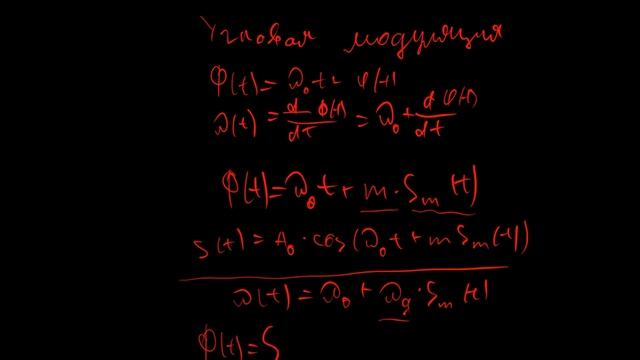 Угловая модуляция
Φ(t) = ω₀t + φ(t)
ω(t) = d Φ(t)/dt = ω₀ + d φ(t)/dt
Φ(t) = ω₀t + m · Sₘ(t)
S(t) = A₀ · cos(ω₀t + m Sₘ(t))
ω(t) = ω₀ + ω_g · Sₘ(t)
Φ(t) = S